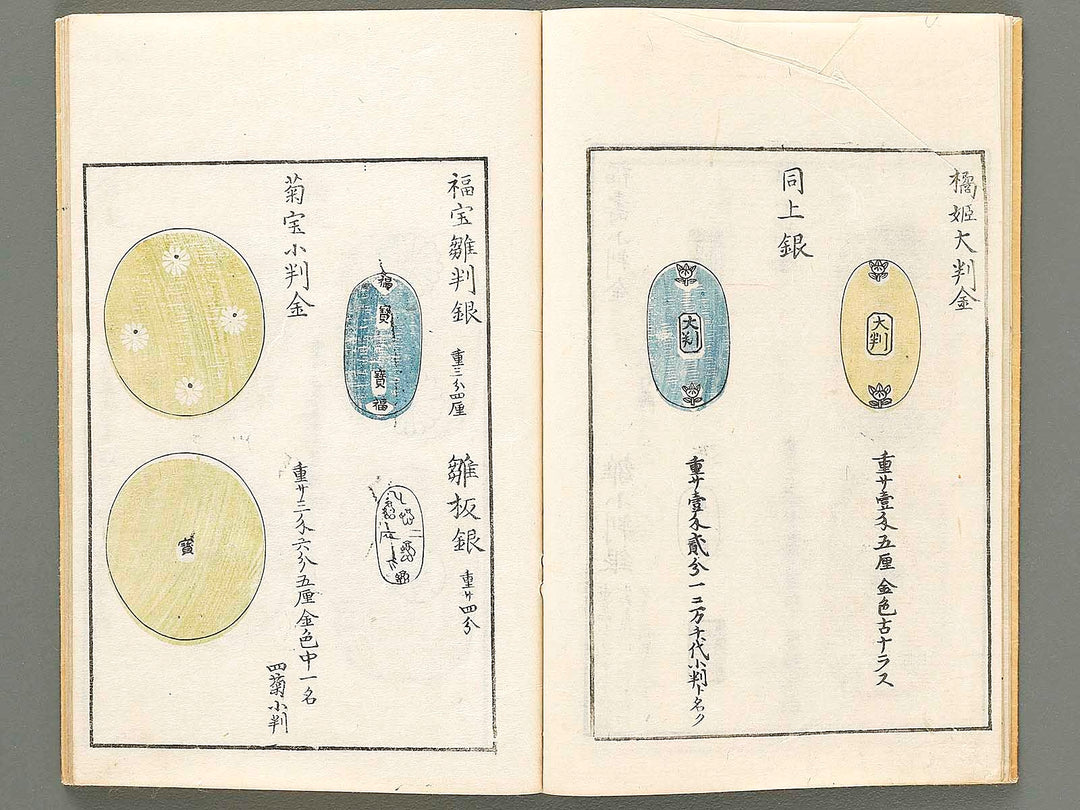 橘姫大判金
大判
重廿壹匁五厘 金色古ナラス
同上銀
大判
重廿壹匁貳分一ニ万千代小判ト名ク
福宝雛判銀 重三分四厘
福
寶
寶
福
雛板銀 重廿四分
菊宝小判金
重廿三匁六分五厘金色中一名
四菊小判
寶